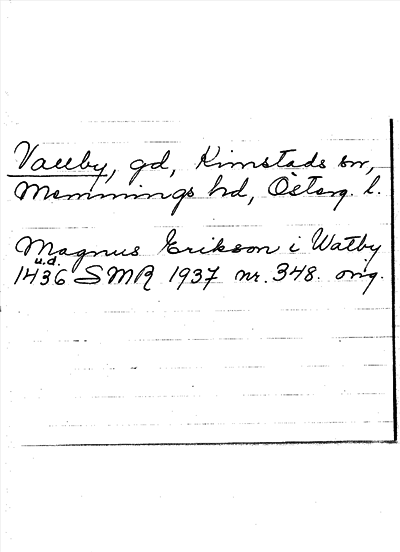 Vallby, gd, Kimstads sn,
Memmings hd, Österg. l.
Magnus Erikson i Watby
u.d.
1436 SMR 1937 nr. 348. orig.